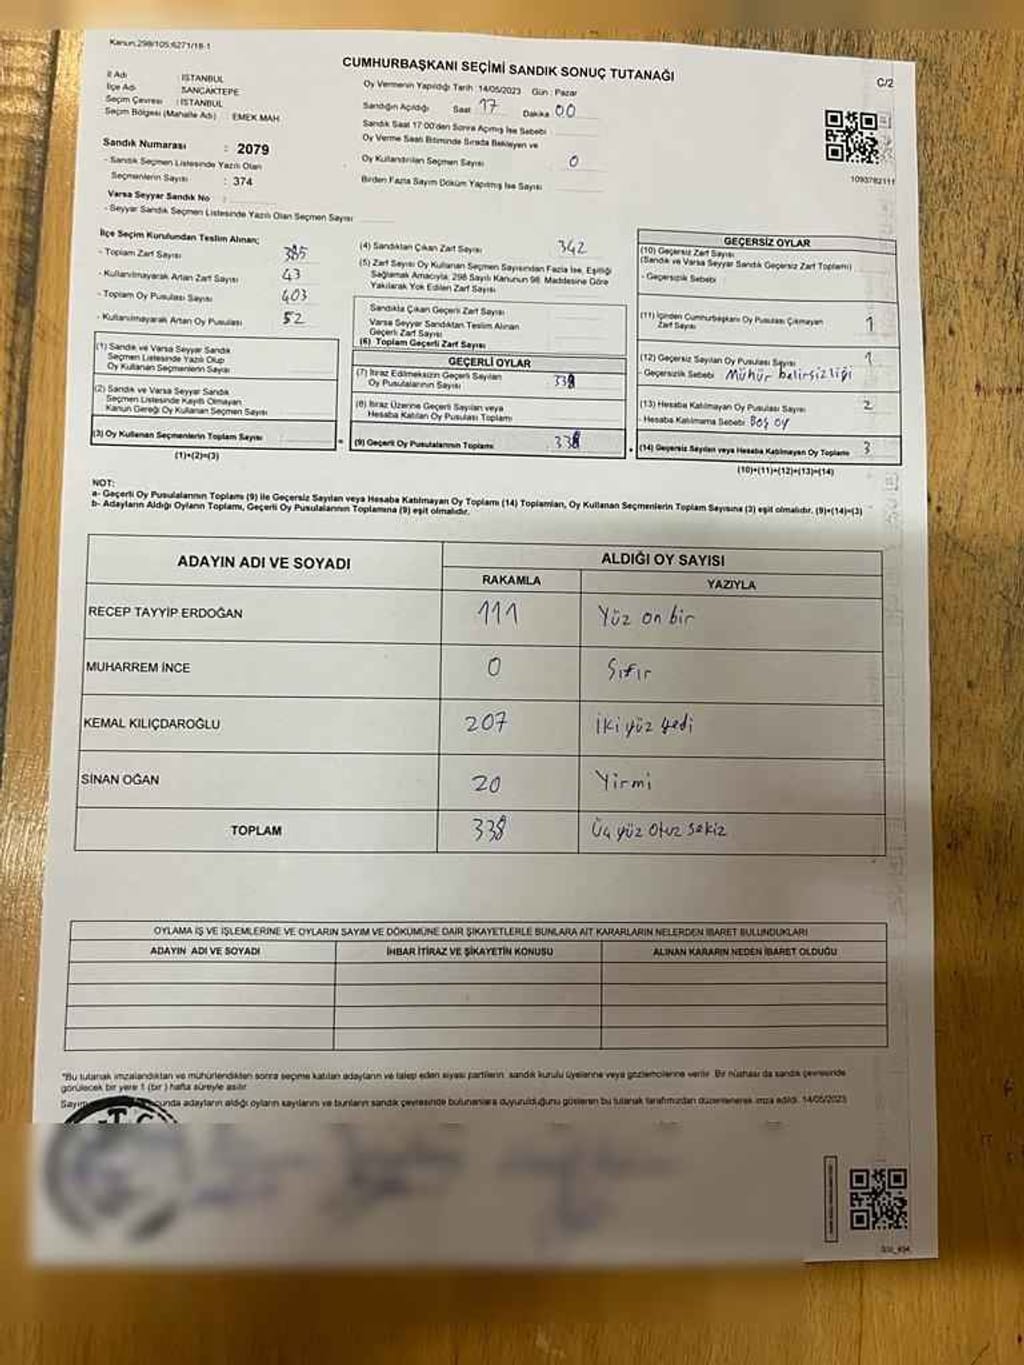 Kanun:298/105;6271/18-1
CUMHURBAŞKANI SEÇİMİ SANDIK SONUÇ TUTANAĞI
C/2
İl Adı : İSTANBUL
İlçe Adı : SANCAKTEPE
Seçim Çevresi : İSTANBUL
Seçim Bölgesi (Mahalle Adı) : EMEK MAH
Sandık Numarası : 2079
- Sandık Seçmen Listesinde Yazılı Olan
Seçmenlerin Sayısı : 374
Varsa Seyyar Sandık No :
- Seyyar Sandık Seçmen Listesinde Yazılı Olan Seçmen Sayısı
Oy Vermenin Yapıldığı Tarih : 14/05/2023 Gün : Pazar
Sandığın Açıldığı Saat 17 Dakika 00
Sandık Saat 17:00'den Sonra Açmış İse Sebebi
Oy Verme Saati Bitiminde Sırada Bekleyen ve
Oy Kullandırılan Seçmen Sayısı 0
Birden Fazla Sayım Döküm Yapılmış İse Sayısı
1093782111
İlçe Seçim Kurulundan Teslim Alınan;
- Toplam Zarf Sayısı 385
- Kullanılmayarak Artan Zarf Sayısı 43
- Toplam Oy Pusulası Sayısı 403
- Kullanılmayarak Artan Oy Pusulası 52
(1) Sandık ve Varsa Seyyar Sandık
Seçmen Listesinde Yazılı Olup
Oy Kullanan Seçmenlerin Sayısı
(2) Sandık ve Varsa Seyyar Sandık
Seçmen Listesinde Kayıtlı Olmayan
Kanun Gereği Oy Kullanan Seçmen Sayısı
(3) Oy Kullanan Seçmenlerin Toplam Sayısı
(1)+(2)=(3)
(4) Sandıktan Çıkan Zarf Sayısı 342
(5) Zarf Sayısı Oy Kullanan Seçmen Sayısından Fazla İse, Eşitliği
Sağlamak Amacıyla, 298 Sayılı Kanunun 98. Maddesine Göre
Yakılarak Yok Edilen Zarf Sayısı
Sandıkta Çıkan Geçerli Zarf Sayısı
Varsa Seyyar Sandıktan Teslim Alınan
Geçerli Zarf Sayısı
(6) Toplam Geçerli Zarf Sayısı
GEÇERLİ OYLAR
(7) İtiraz Edilmeksizin Geçerli Sayılan
Oy Pusulalarının Sayısı 338
(8) İtiraz Üzerine Geçerli Sayılan veya
Hesaba Katılan Oy Pusulası Toplamı
= (9) Geçerli Oy Pusulalarının Toplamı 338
GEÇERSİZ OYLAR
(10) Geçersiz Zarf Sayısı
(Sandık ve Varsa Seyyar Sandık Geçersiz Zarf Toplamı)
- Geçersizlik Sebebi
(11) İçinden Cumhurbaşkanı Oy Pusulası Çıkmayan
Zarf Sayısı 1
(12) Geçersiz Sayılan Oy Pusulası Sayısı 1
- Geçersizlik Sebebi Mühür belirsizliği
(13) Hesaba Katılmayan Oy Pusulası Sayısı 2
- Hesaba Katılmama Sebebi Boş oy
+ (14) Geçersiz Sayılan veya Hesaba Katılmayan Oy Toplamı 3
(10)+(11)+(12)+(13)=(14)
NOT:
a- Geçerli Oy Pusulalarının Toplamı (9) ile Geçersiz Sayılan veya Hesaba Katılmayan Oy Toplamı (14) Toplamları, Oy Kullanan Seçmenlerin Toplam Sayısına (3) eşit olmalıdır. (9)+(14)=(3)
b- Adayların Aldığı Oyların Toplamı, Geçerli Oy Pusulalarının Toplamına (9) eşit olmalıdır.
ADAYIN ADI VE SOYADI
ALDIĞI OY SAYISI
RAKAMLA YAZIYLA
RECEP TAYYİP ERDOĞAN 111 Yüz on bir
MUHARREM İNCE 0 Sıfır
KEMAL KILIÇDAROĞLU 207 İki yüz yedi
SİNAN OĞAN 20 Yirmi
TOPLAM 338 Üç yüz otuz sekiz
OYLAMA İŞ VE İŞLEMLERİNE VE OYLARIN SAYIM VE DÖKÜMÜNE DAİR ŞİKAYETLERLE BUNLARA AİT KARARLARIN NELERDEN İBARET BULUNDUKLARI
ADAYIN ADI VE SOYADI İHBAR İTİRAZ VE ŞİKAYETİN KONUSU ALINAN KARARIN NEDEN İBARET OLDUĞU
*Bu tutanak imzalandıktan ve mühürlendikten sonra seçime katılan adayların ve talep eden siyasi partilerin sandık kurulu üyelerine veya gözlemcilerine verilir. Bir nüshası da sandık çevresinde
görülecek bir yere 1 (bir) hafta süreyle asılır.
Sayım unda adayların aldığı oyların sayılarını ve bunların sandık çevresinde bulunanlara duyurulduğunu gösteren bu tutanak tarafımızdan düzenlenerek imza edildi. 14/05/2023
T.C.